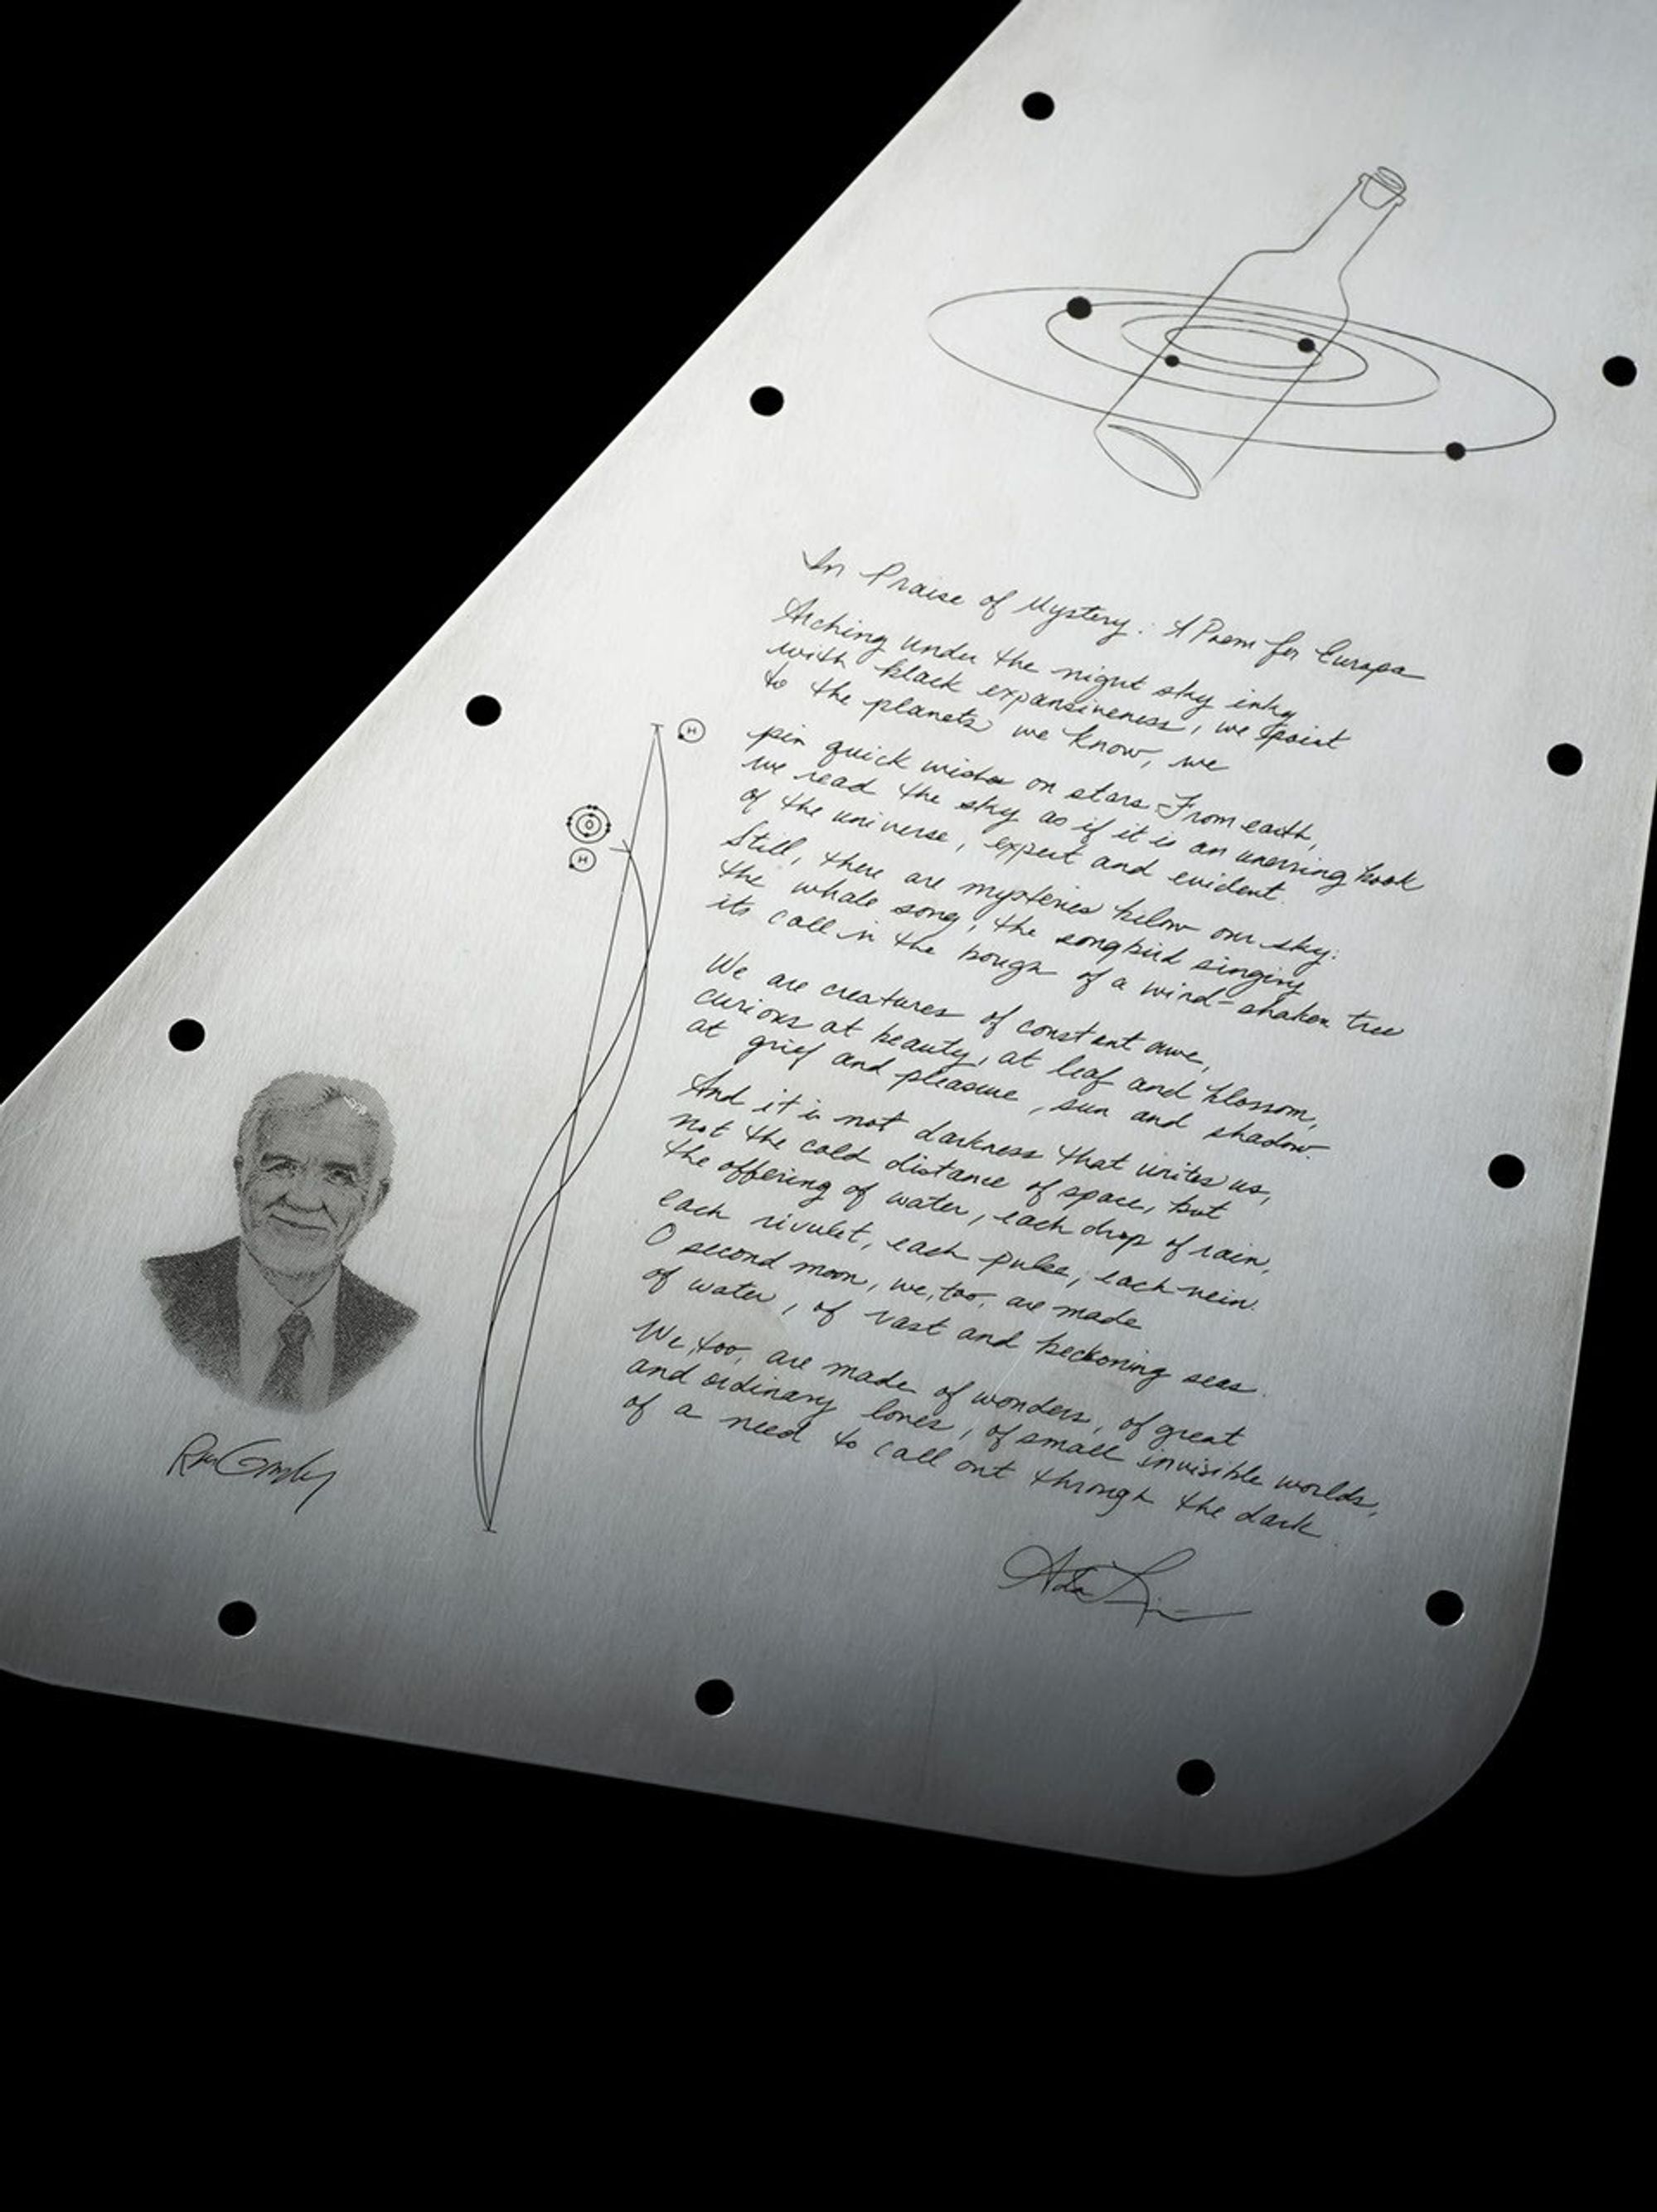 In Praise of Mystery: A Poem for Europa
Arching under the night sky inky
with black expansiveness, we point
to the planets we know, we
pin quick wishes on stars. From earth,
we read the sky as if it is an unerring book
of the universe, expert and evident.
Still, there are mysteries below our sky:
the whale song, the songbird singing
its call in the bough of a wind-shaken tree.
We are creatures of constant awe,
curious at beauty, at leaf and blossom,
at grief and pleasure, sun and shadow.
And it is not darkness that unites us,
not the cold distance of space, but
the offering of water, each drop of rain,
each rivulet, each pulse, each vein.
O second moon, we, too, are made
of water, of vast and beckoning seas.
We, too, are made of wonders, of great
and ordinary loves, of small invisible worlds,
of a need to call out through the dark.
Ada Limón
H
O
H
Ron Greeley